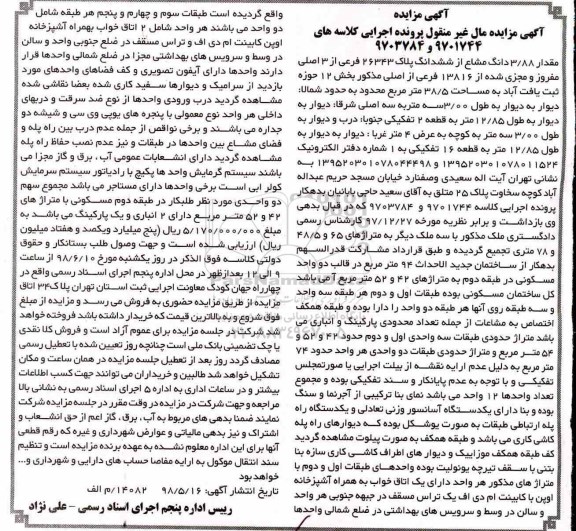 آگهی مزایده
آگهی مزایده مال غیر منقول پرونده اجرایی کلاسه های
۹۷۰۱۷۴۴ و ۹۷۰۳۷۸۴
مقدار ۳/۸۸ دانگ مشاع از ششدانگ پلاک ۲۶۳۴۳ فرعی از ۳ اصلی
مفروز و مجزی شده از ۱۳۸۱۶ فرعی از اصلی مذکور بخش ۱۲ حوزه
ثبت یافت آباد به مساحت ۳۸/۵ متر مربع محدود به حدود شمالا:
دیوار به دیوار به طول ۳/۰۰ سه متر به سه اصلی شرقا: دیوار به
دیوار به طول ۱۲/۸۵ متر به قطعه ۲ تفکیکی جنوبا: درب و دیوار به
طول ۳/۰۰ سه متر به کوچه به عرض ۴ متر غربا : دیوار به دیوار به
طول ۱۲/۸۵ متر به قطعه ۱۶ تفکیکی به ۱ شماره دفتر الکترونیک
۱۳۹۵۲۰۳۰۱۰۷۸۰۱۱۵۲۴ و ۱۳۹۵۲۰۳۰۱۰۷۸۰۴۴۴۹۸ به
نشانی تهران آیت اله سعیدی وصفنارد خیابان مسجد حریم عبداله
آباد کوچه سخاوت پلاک ۲۵ متلق به آقای سعید حاجی بابائیان بدهکار
پرونده اجرایی کلاسه ۹۷۰۱۷۴۴ و ۹۷۰۳۷۸۴ که در قبال بدهی
وی بازداشت و برابر نظریه مورخه ۹۷/۱۲/۲۷ کارشناس رسمی
دادگستری ملک مذکور با سه ملک دیگر به متراژهای ۶۵ و ۴۸/۵
و ۷۸ متری تجمیع گردیده و طبق قرارداد مشارکت قدرالسهم
بدهکار از ساختمان جدید الاحداث ۹۴ متر مربع در قالب دو واحد
مسکونی در طبقه دوم به متراژهای ۴۲ و ۵۲ متر مربع آمی باشد
کل ساختمان مسکونی بوده طبقات اول و دوم هر طبقه سه واحد
و سه طبقه روی آنها هر طبقه دو واحد را دارا بوده و طبقه همکف
اختصاص به مشاعات از جمله تعداد محدودی پارکینگ و انباری می
باشد متراژ حدودی طبقات سه واحدی اول و دوم حدود ۴۲ و ۵۲ و
۵۴ متر مربع و متراژ حدودی طبقات دو واحدی هر واحد حدود ۷۴
متر مربع به دلیل عدم ارایه نقشه از بیلت اجرایی یا صورتمجلس
تفکیکی و با توجه به عدم پایانکار و سند تفکیکی بوده و مجموع
تعداد واحدها ۱۲ واحد می باشد نمای بنا ترکیبی از آجرنما و سنگ
بوده و بنا دارای یکدستگاه آسانسور وزنی تعادلی و یکدستگاه راه
پله ارتباطی طبقات به صورت یوشکل بوده که دیوارهای راه پله
کاشی کاری می باشد و طبقه همکف به صورت پیلوت مشاهده گردید
کف طبقه همکف موزاییک و دیوار های اطراف کاشی کاری سازه بنا
بتنی با سقف تیرچه یونولیت بوده واحدهای طبقات اول و دوم با
متراژ های مذکور هر واحد دارای یک اتاق خواب به همراه آشپزخانه
اوپن با کابینت ام دی اف یک تراس مسقف در جبهه جنوبی هر واحد
و سالن در وسط و سرویس های بهداشتی در ضلع شمالی واحدها
واقع گردیده است طبقات سوم و چهارم و پنجم هر طبقه شامل
دو واحد می باشند هر واحد شامل ۲ اتاق خواب بهمراه آشپزخانه
اوپن کابینت ام دی اف و تراس مسقف در ضلع جنوبی واحد و سالن
در وسط و سرویس های بهداشتی مجزا در ضلع شمالی واحدها قرار
دارند واحدها دارای آیفون تصویری و کف فضاهای واحدهای مورد
بازدید از سرامیک و دیوارها سفید کاری شده بعضا نقاشی شده
مشاهده گردید درب ورودی واحدها از نوع ضد سرقت و دربهای
داخلی هر واحد نوع معمولی با پنجره های یوپی وی سی و شیشه دو
جداره می باشند و برخی نواقص از جمله عدم درب بین راه پله و
فضای مشاع بین واحدها در طبقات و نیز عدم نصب حفاظ راه پله
مشاهده گردید دارای انشعابات عمومی آب، برق و گاز مجزا می
باشند سیستم گرمایش واحد ها پکیچ با رادیاتور سیستم سرمایش
کولر ابی است برخی واحدها دارای مستاجر می باشد مجموع سهم
دو واحدی مورد نظر طلبکار در طبقه دوم مسکونی با متراژ های
۴۲ و ۵۲ متر مربع دارای ۲ انباری و یک پارکینگ می باشد به
مبلغ ۵/۱۷۰/۰۰۰/۰۰۰ ریال (پنج میلیارد ویکصد و هفتاد میلیون
ریال) ارزیابی شده است و جهت وصول طلب بستانکار و حقوق
دولتی کلاسه فوق الذکر در روز یکشنبه مورخ ۹۸/۶/۱۰ از ساعت
۹ الی ۱۲ بعدازظهر در محل اداره پنجم اجرای اسناد رسمی واقع در
چهارراه جهان کودک معاونت اجرایی ثبت استان تهران پلاک ۳۴ اتاق
مزایده از طریق مزایده حضوری به فروش می رسد و مزایده از مبلغ
فوق شروع و به بالاترین قیمت که خریدار داشته باشد فروخته خواهد
شد شرکت در جلسه مزایده برای عموم آزاد است و فروش کلا نقدی
با چک تضمینی بانک ملی است چنانچه روز تعیین شده با تعطیل رسمی
مصادف گردد روز بعد از تعطیل جلسه مزایده در همان ساعت و مکان
تشکیل خواهد شد طالبین و خریداران می توانند جهت کسب اطلاعات
بیشتر و در ساعات اداری به اداره ۵ اجرای اسناد رسمی به نشانی بالا
مراجعه و جهت شرکت در مزایده در وقت مقرر در جلسه مزایده شرکت
نمایند ضمنا بدهی های مربوط به آب، برق، گاز اعم از حق انشعاب و
اشتراک و نیز بدهی مالیاتی و عوارض شهرداری و غیره که رقم قطعی
آنها برای این اداره معلوم نشده به عهده برنده مزایده است و تنظیم
سند انتقال موکول به ارایه مفاصا حساب های دارایی و شهرداری و...
خواهد بود
تاریخ انتشار آگهی: ۹۸/۵/۱۶ ۱۴۰۸۲/م الف
رییس اداره پنجم اجرای اسناد رسمی - علی نژاد